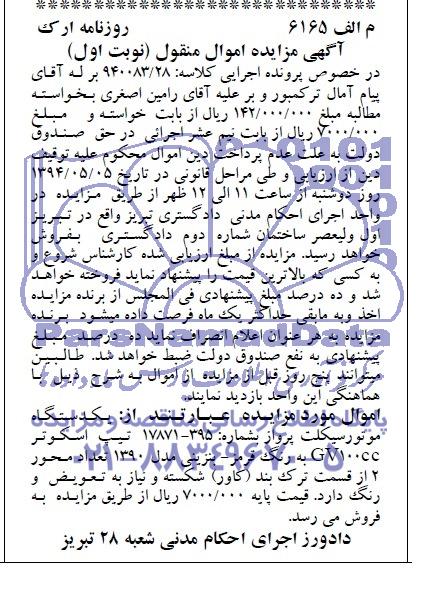 م الف ۶۱۶۵ روزنامه ارک
آگهی مزایده اموال منقول (نوبت اول)
در خصوص پرونده اجرایی کلاسه: ۹۴۰۰۸۳/۲۸ بر له آقای
پیام آمال ترکمپور و بر علیه آقای رامین اصغری بخواسته
مطالبه مبلغ ۱۴۲/۰۰۰/۰۰۰ ریال از بابت خواسته و مبلغ
۷/۰۰۰/۰۰۰ ریال از بابت نیم عشر اجرائی در حق صندوق
دولت به علت عدم پرداخت دین اموال محکوم علیه توقیف
دین از ارزیابی و طی مراحل قانونی در تاریخ ۱۳۹۴/۰۵/۰۵
روز دوشنبه از ساعت ۱۱ الی ۱۲ ظهر از طریق مزایده در
واحد اجرای احکام مدنی دادگستری تبریز واقع در تبریز
اول ولیعصر ساختمان شماره دوم دادگستری بفروش
خواهد رسید. مزایده از مبلغ ارزیابی شده کارشناس شروع و
به کسی که بالاترین قیمت را پیشنهاد نماید فروخته خواهد
شد و ده درصد مبلغ پیشنهادی فی المجلس از برنده مزایده
اخذ وبه مابقی حداکثر یک ماه فرصت داده میشود برنده
مزایده به هر عنوان اعلام انصراف نماید ده درصد مبلغ
پیشنهادی به نفع صندوق دولت ضبط خواهد شد. طالبین
میتوانند پنج روز قبل از مزایده از اموال به شرح ذیل با
هماهنگی این واحد بازدید نمایند.
اموال مورد مزایده عبارتند از: یکدستگاه
موتورسیکلت پرواز بشماره: ۳۹۵-۱۷۸۷۱ تیپ اسکوتر
GV۱۰۰cc به رنگ قرمز - بنزینی مدل ۱۳۹۰ تعداد محور
۲ از قسمت ترک بند (کاور) شکسته و نیاز به تعویض و
رنگ دارد. قیمت پایه ۷/۰۰۰/۰۰۰ ریال از طریق مزایده به
فروش می رسد.
دادورز اجرای احکام مدنی شعبه ۲۸ تبریز
ParsNamadData
پایگاه اطلاع رسانی مناقصه و مزایده
۰۲۱-۸۸۳۴۹۶۷۰-۵